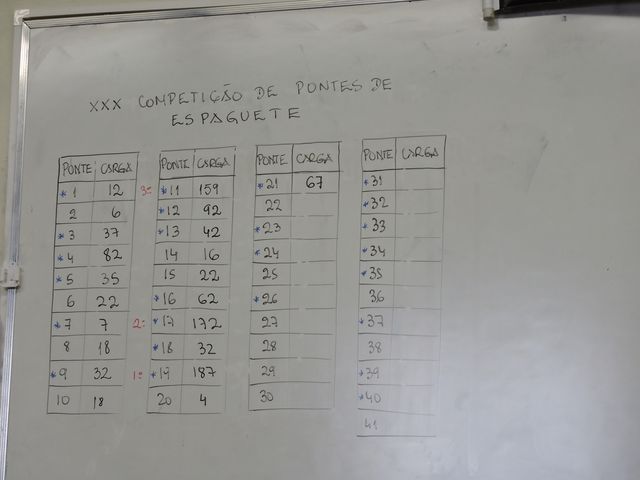 XXX COMPETIÇÃO DE PONTES DE
ESPAGUETE
PONTE CARGA
* 1 12
2 6
* 3 37
* 4 82
* 5 35
6 22
* 7 7
8 18
* 9 32
10 18
PONTE CARGA
3= * 11 159
* 12 92
* 13 42
14 16
15 22
* 16 62
2= * 17 172
* 18 32
1= * 19 187
20 4
PONTE CARGA
* 21 67
22
* 23
* 24
25
* 26
27
28
29
30
PONTE CARGA
* 31
* 32
* 33
* 34
* 35
36
* 37
38
* 39
* 40
41